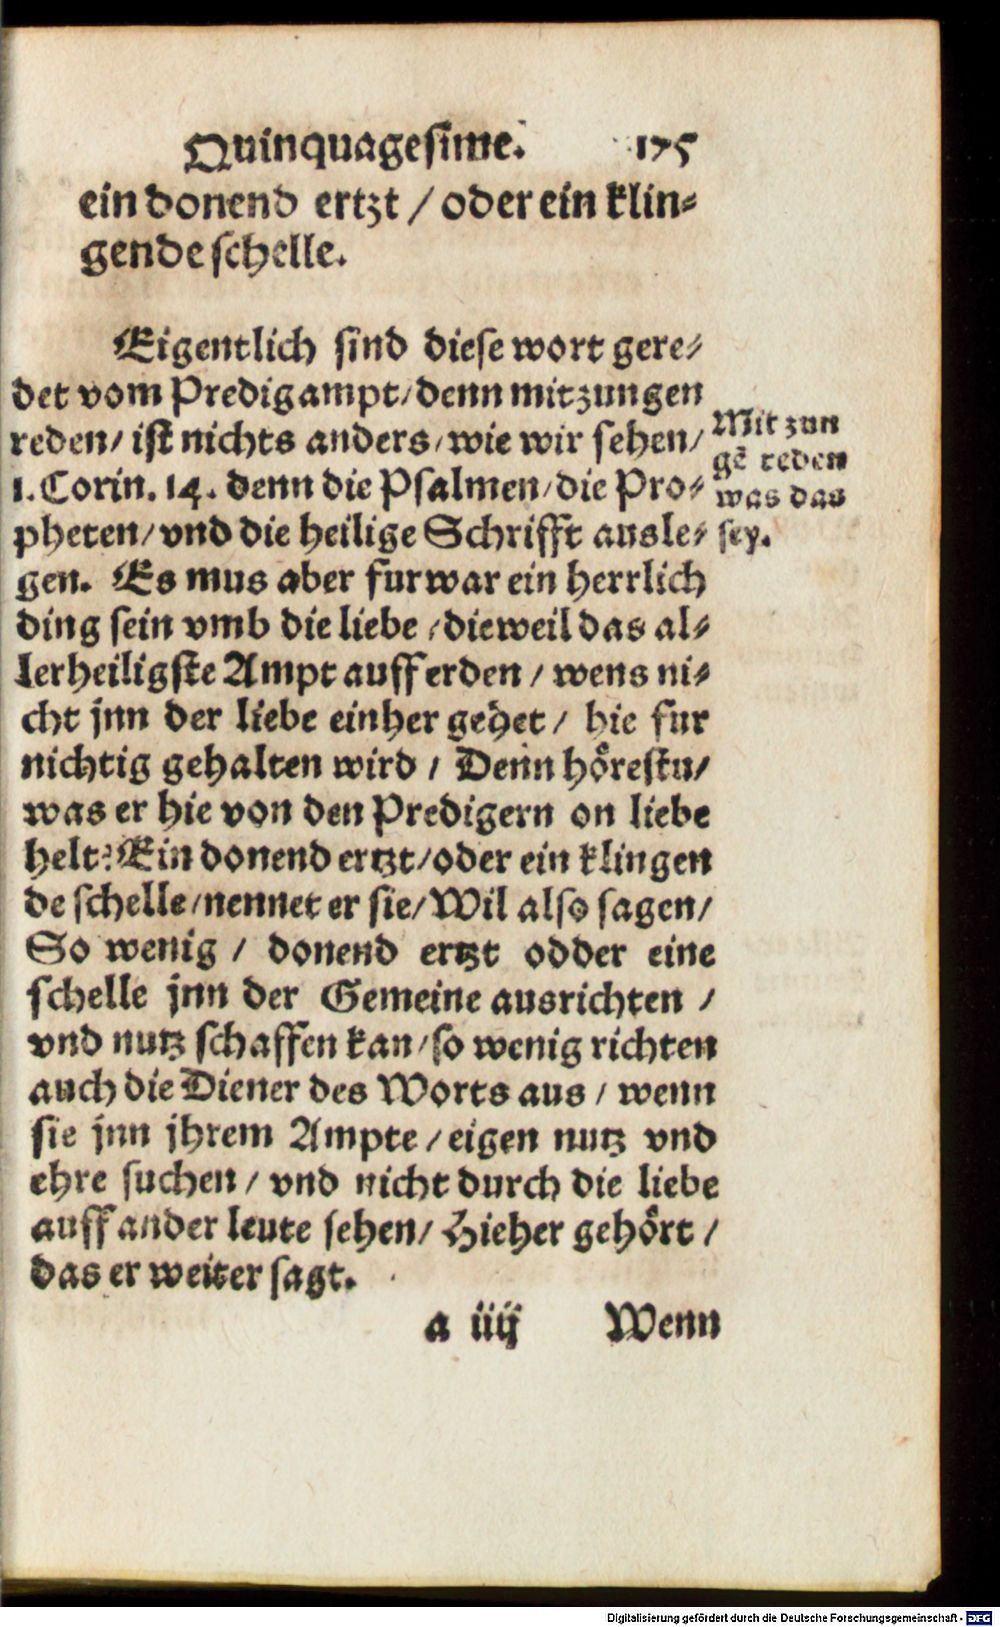 Quinquagesime. 175
ein donend ertzt / oder ein klin⸗
gende schelle.
Eigentlich sind diese wort gere⸗
det vom Predigampt / denn mit zungen
reden / ist nichts anders / wie wir sehen /
1. Corin. 14. denn die Psalmen / die Pro⸗
pheten / vnd die heilige Schrifft ausle⸗
gen. Es mus aber furwar ein herrlich
ding sein vmb die liebe / dieweil das al⸗
lerheiligste Ampt auff erden / wens ni⸗
cht jnn der liebe einher gehet / hie fur
nichtig gehalten wird / Denn hörestu /
was er hie von den Predigern on liebe
helt? Ein donend ertzt / oder ein klingen
de schelle / nennet er sie / Wil also sagen /
So wenig / donend ertzt odder eine
schelle jnn der Gemeine ausrichten /
vnd nutz schaffen kan / so wenig richten
auch die Diener des Worts aus / wenn
sie jnn jhrem Ampte / eigen nutz vnd
ehre suchen / vnd nicht durch die liebe
auff ander leute sehen / Hieher gehört /
das er weiter sagt.
a iiij Wenn
Mit zun
gē reden
was das
sey.
Digitalisierung gefördert durch die Deutsche Forschungsgemeinschaft - DFG